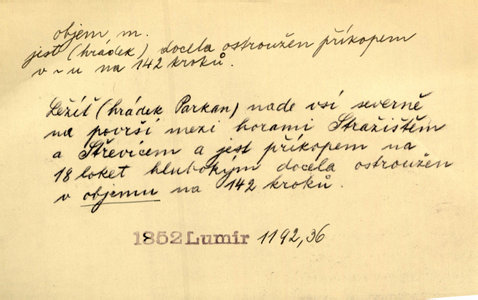 objem m.
jest (hrádek) docela ostroužen příkopem
v ~ u na 142 kroků.
Ležíť (hrádek Parkan) nade vsí severně
na površí mezi horami Stražištěm
a Střevícem a jest příkopem na
18 loket hlubokým docela ostroužen
v objemu na 142 kroků.
1852 Lumír 1192,36